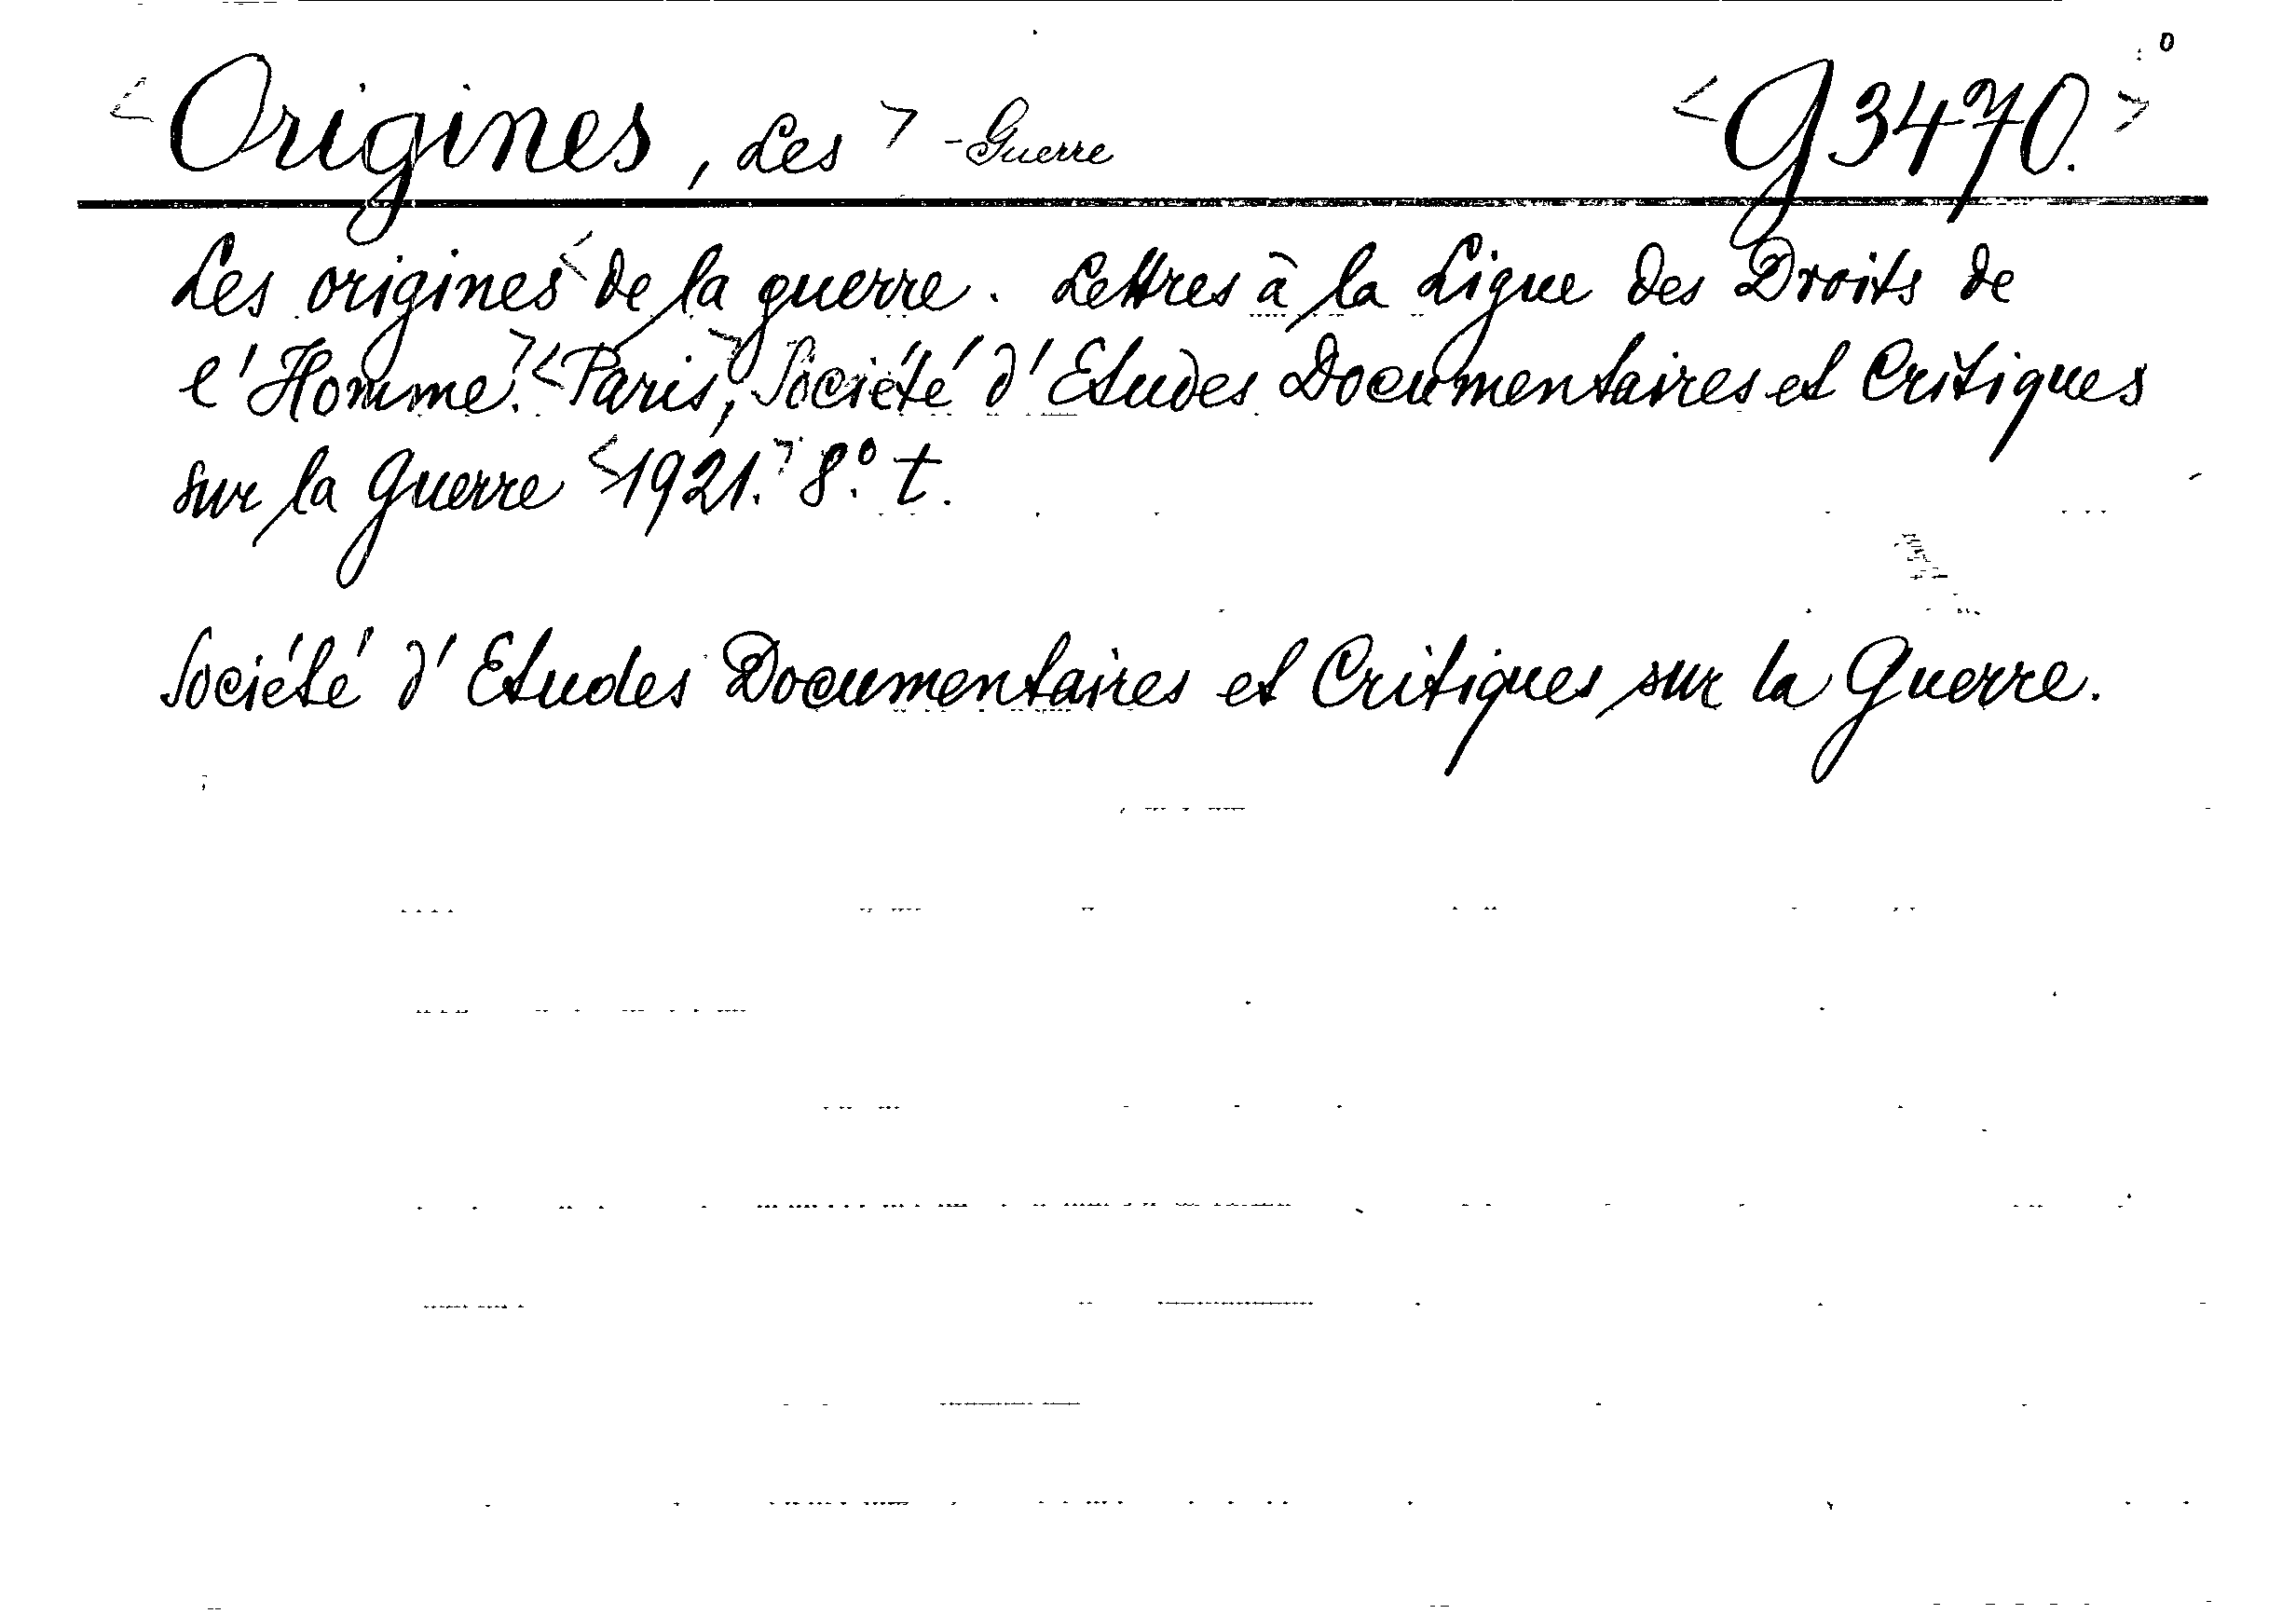 <Origines, Les> - Guerre <G 3470.>
Les origines <de la guerre. Lettres à la Ligue des Droits de
l'Homme.> <Paris,> Société d'Etudes Documentaires et Critiques
sur la Guerre <1921.> 8.° t.
Société d'Etudes Documentaires et Critiques sur la Guerre.